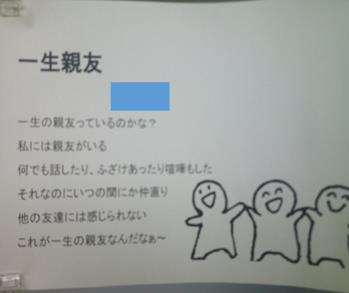 一生親友
一生の親友っているのかな？
私には親友がいる
何でも話したり、ふざけあったり喧嘩もした
それなのにいつの間にか仲直り
他の友達には感じられない
これが一生の親友なんだなぁ～